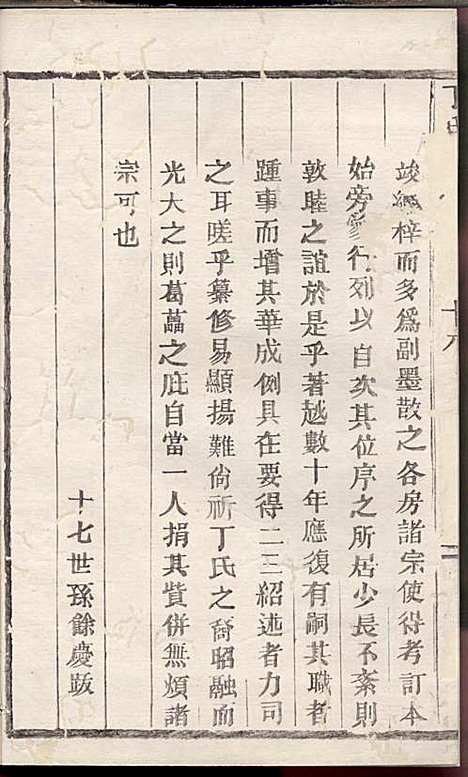 丁氏
十八
竣繩梓而多爲副墨散之各房諸宗使得考訂本
始旁爰行列以自次其位序之所居少長不紊則
敦睦之誼於是乎著越數十年應復有嗣其職者
踵事而增其華成例具在要得二三紹述者力司
之耳嗟乎纂修易顯揚難尙祈丁氏之裔昭融而
光大之則葛藟之庇自當一人捐其貲併無煩諸
宗可也
十七世孫餘慶跋